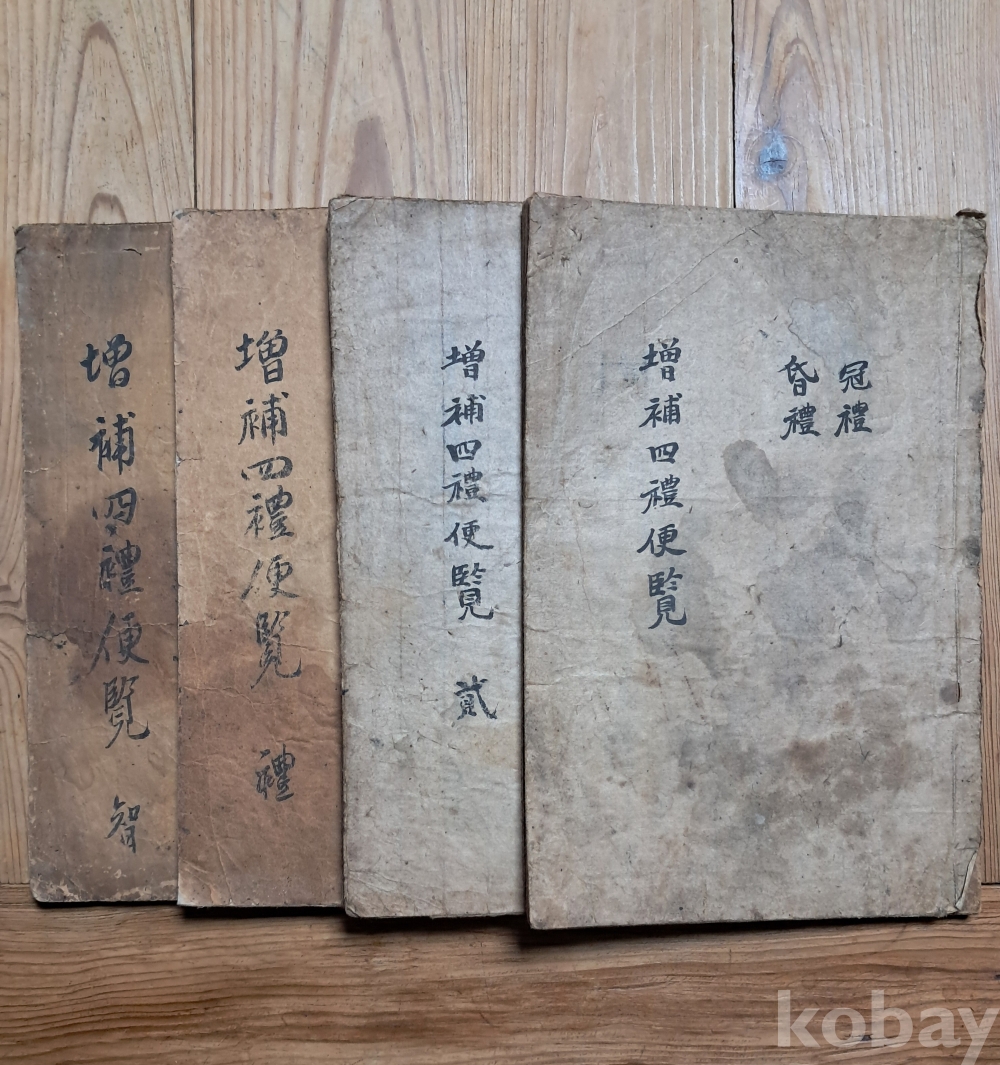 冠禮
昏禮
增補四禮便覽
增補四禮便覽 貳
增補四禮便覽 禮
增補四禮便覽 智
kobay